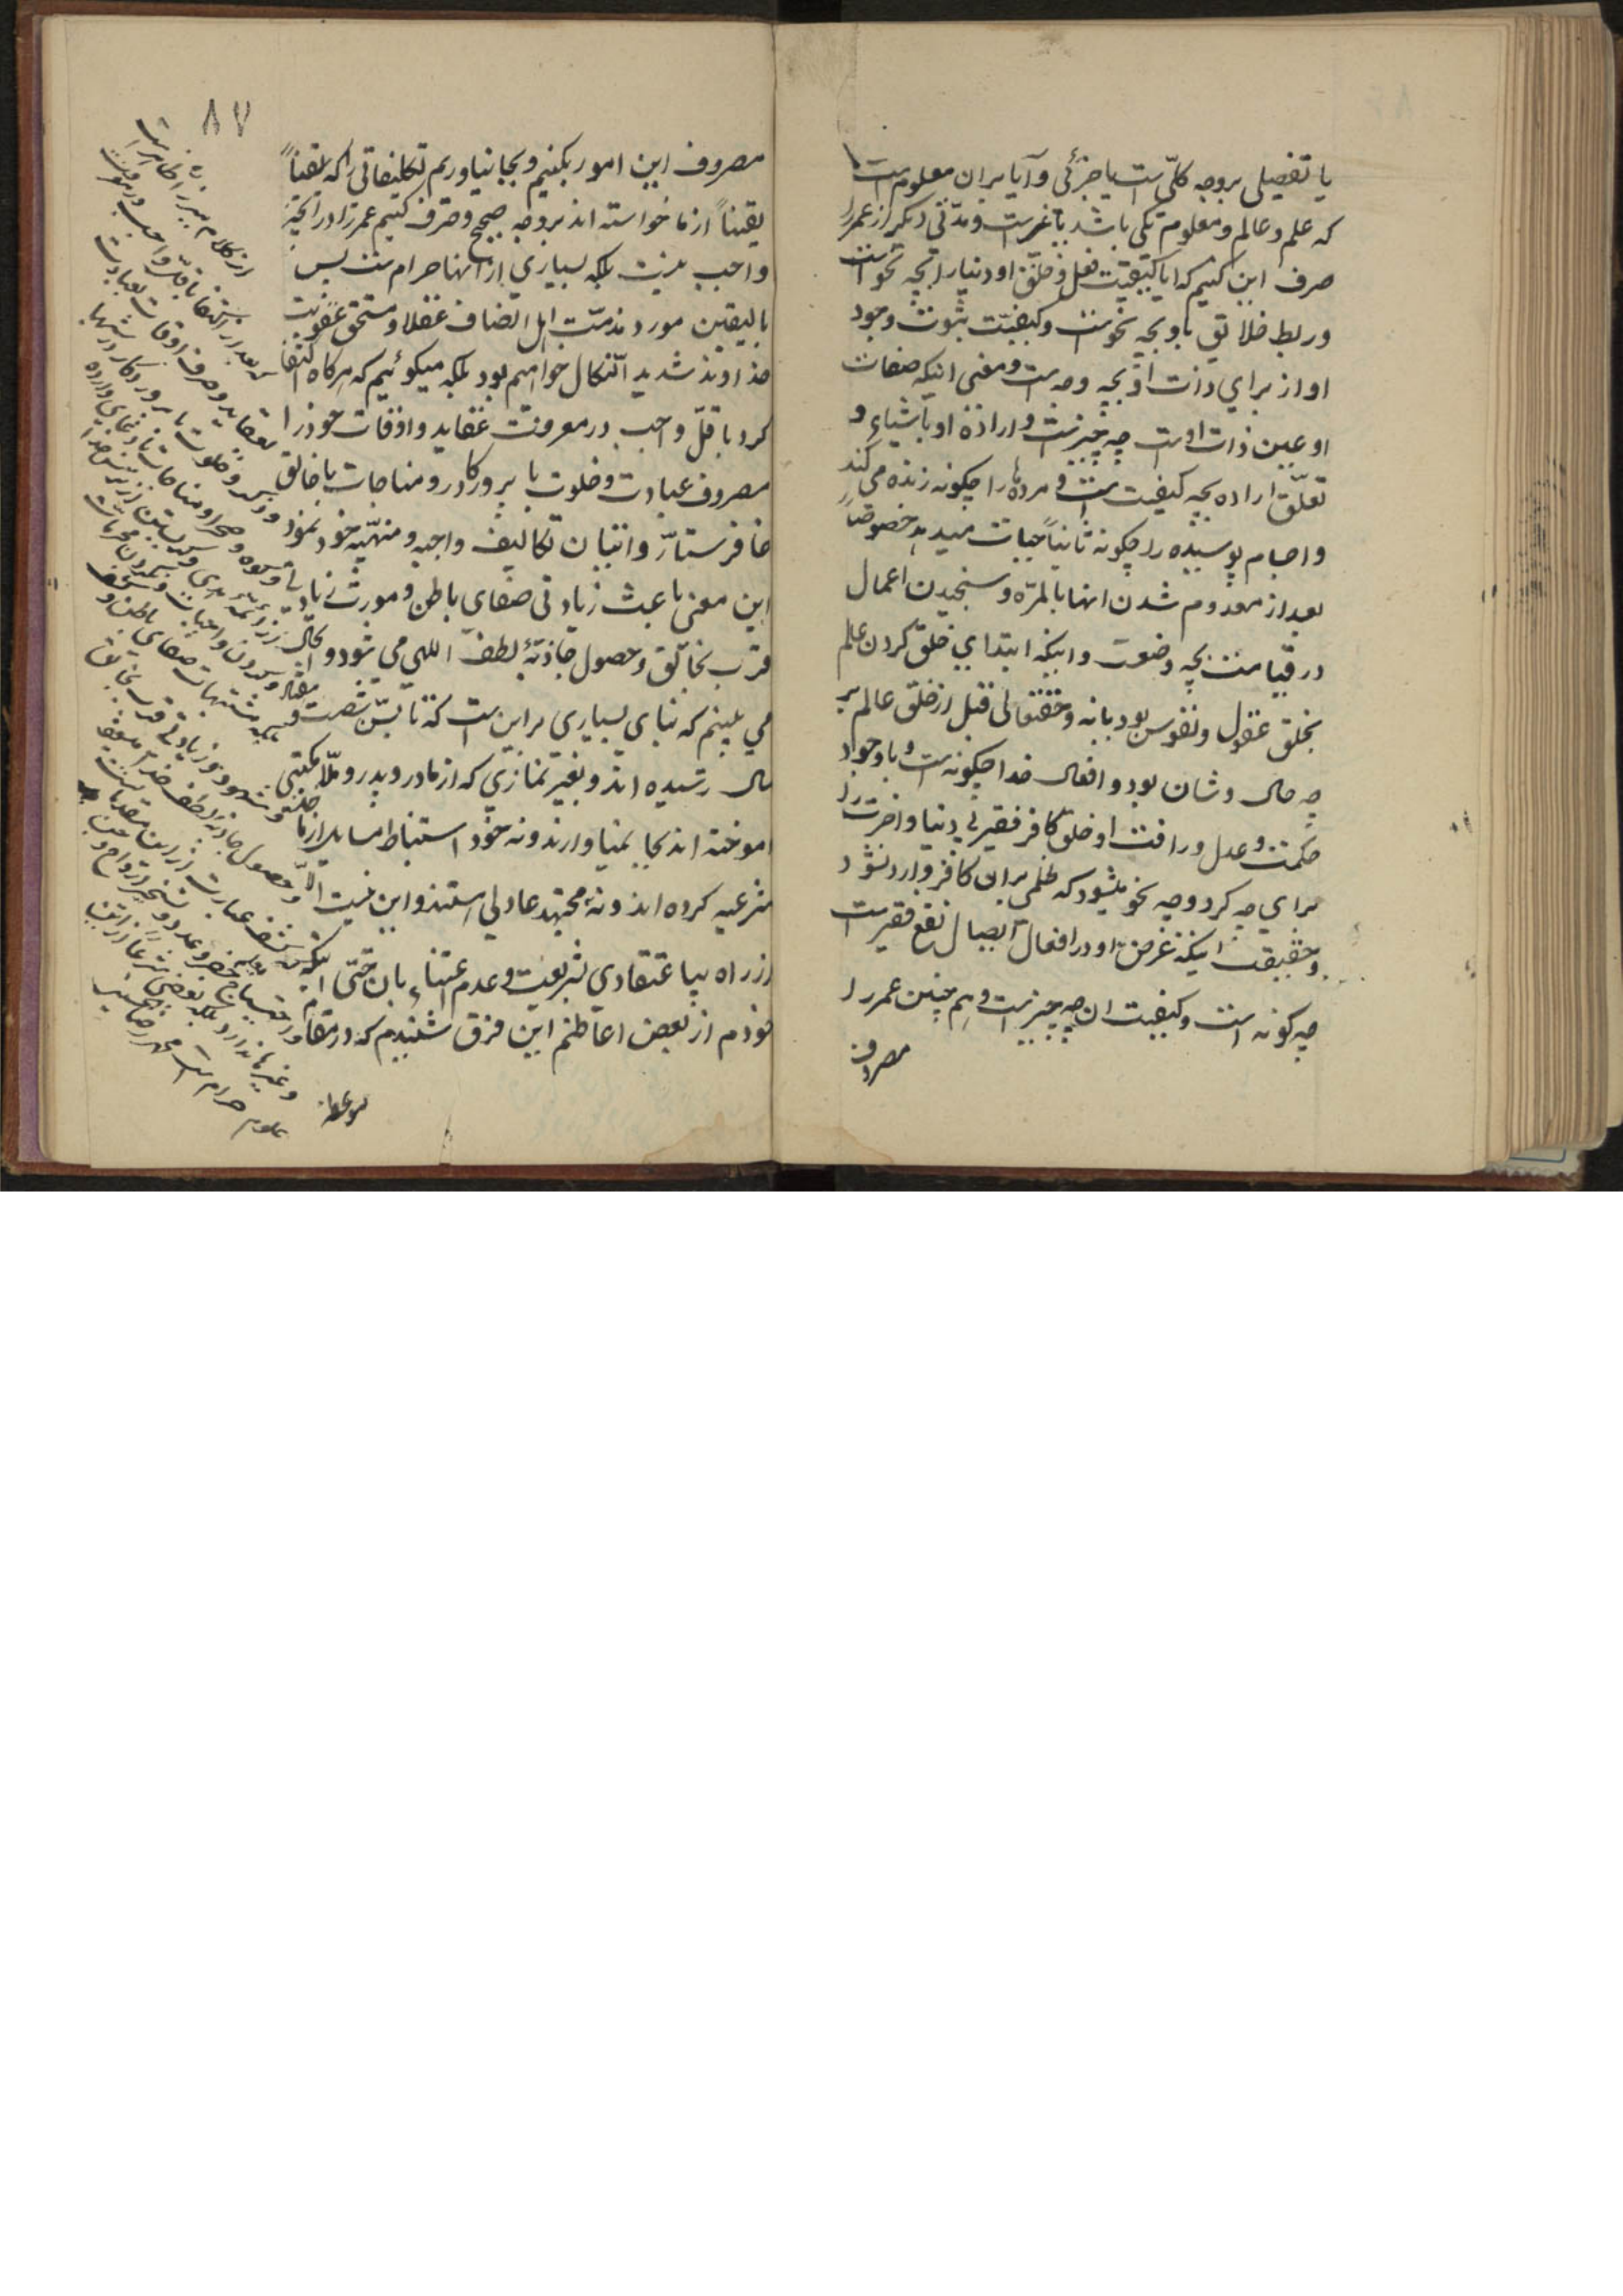 یا تفصیلی بروجه کلّی است یا جزئی و آیا بران معلوم است
که علم و عالم و معلوم یکی باشد یا غیرست و مدّتی دیکر از عمر را
صرف این کنیم که ایا کیفیّت فعل و خلق او دنیا را بچه نحو است
و ربط خلایق باو بچه نحو است و کیفیّت ثبوت وجود
او از برای ذات او بچه وجه است و معنی اینکه صفات
او عین ذات اوست چه چیزست و اراده او باشیاء و
تعلّق اراده بچه کیفیت است و مرده‌ها را چکونه زنده می کند
و اجسام پوسیده را چکونه ثانیاً حیات میدهد خصوصاً
بعد از معدوم شدن انها بالمرّه و سنجیدن اعمال
در قیامت بچه وضعست و اینکه ابتدای خلق کردن عالم
بخلق عقول و نفوس بود یا نه و حقتعالی قبل از خلق عالم بر
چه حال و شان بود و افعال خدا چکونه است و با وجود
حکمت و عدل و رافت او خلق کافر فقیر بی دنیا و اخرت را
برای چه کرد و چه نحو میشود که ظلمی بران کافر وارد نشود
و حقیقت اینکه غرض او در افعال ایصال نفع فقیرست
چه کونه است و کیفیت ان چه چیزست و هم چنین عمر را
مصروف
۸۷
مصروف این امور بکنیم و بجا نیاوریم تکلیفاتی را که یقیناً
یقیناً از ما خواسته اند بروجه صحیح و صرف کنیم عمر را در انچه
واجب نیست بلکه بسیاری از انها حرام است پس
بالیقین مورد مذمّت اهل انصاف عقلا و مستحق عقوبت
خداوند شدید النّکال خواهیم بود بلکه میکوئیم که هرکاه اکتفا
کرد باقلّ واجب در معرفت عقاید و اوقات خود را
مصروف عبادت و خلوت با پروردکار و مناجات با خالق
غافر ستّار و اتیان تکالیف واجبه و منهیّه خود نمود
این معنی باعث زیادتی صفای باطن و مورث زیادتی
قرب بخالق و حصول جاذبهٔ لطف اللهی می شود و بحال
می بینم که بنای بسیاری بر این است که تا بسنّ شصت
سال رسیده اند و بغیر نمازی که از مادر و پدر و ملّا مکتبی
اموخته اند بجا نمیاورند و نه خود استنباط مسایل
شرعیه کرده اند و نه مجتهد عادلی و این نیست الّا
از راه بی اعتقادی بشریعت و عدم اعتناء بان حتّی اینکه
خودم از بعض اعاظم این فرق شنیدم که در مقام
موعظه
از کلام میرزا ظاهر است
که بعد از اکتفا باقلّ واجب در معرفت
عقاید و صرف اوقات بعبادت
و خلوت با پروردکار در شبها
و کوه و صحرا و مناجات با دعاهای وارده
از ائمّه هدی و کریستن از ترس خدا
و کردن واجبات و نکردن محرمات
بلکه مشتبهات صفای باطن و کشف
و شهود و نور زیادتی قرب بخالق
و حصول جاذبه لطف خدا میشود
کشف عبارت از این مقدمات است
و احتیاج بحضر و عدد و تسخیر ارواح و جن
و غیرها ندارد بلکه بعضی شرعا از این
علوم حرام است محمد رضا